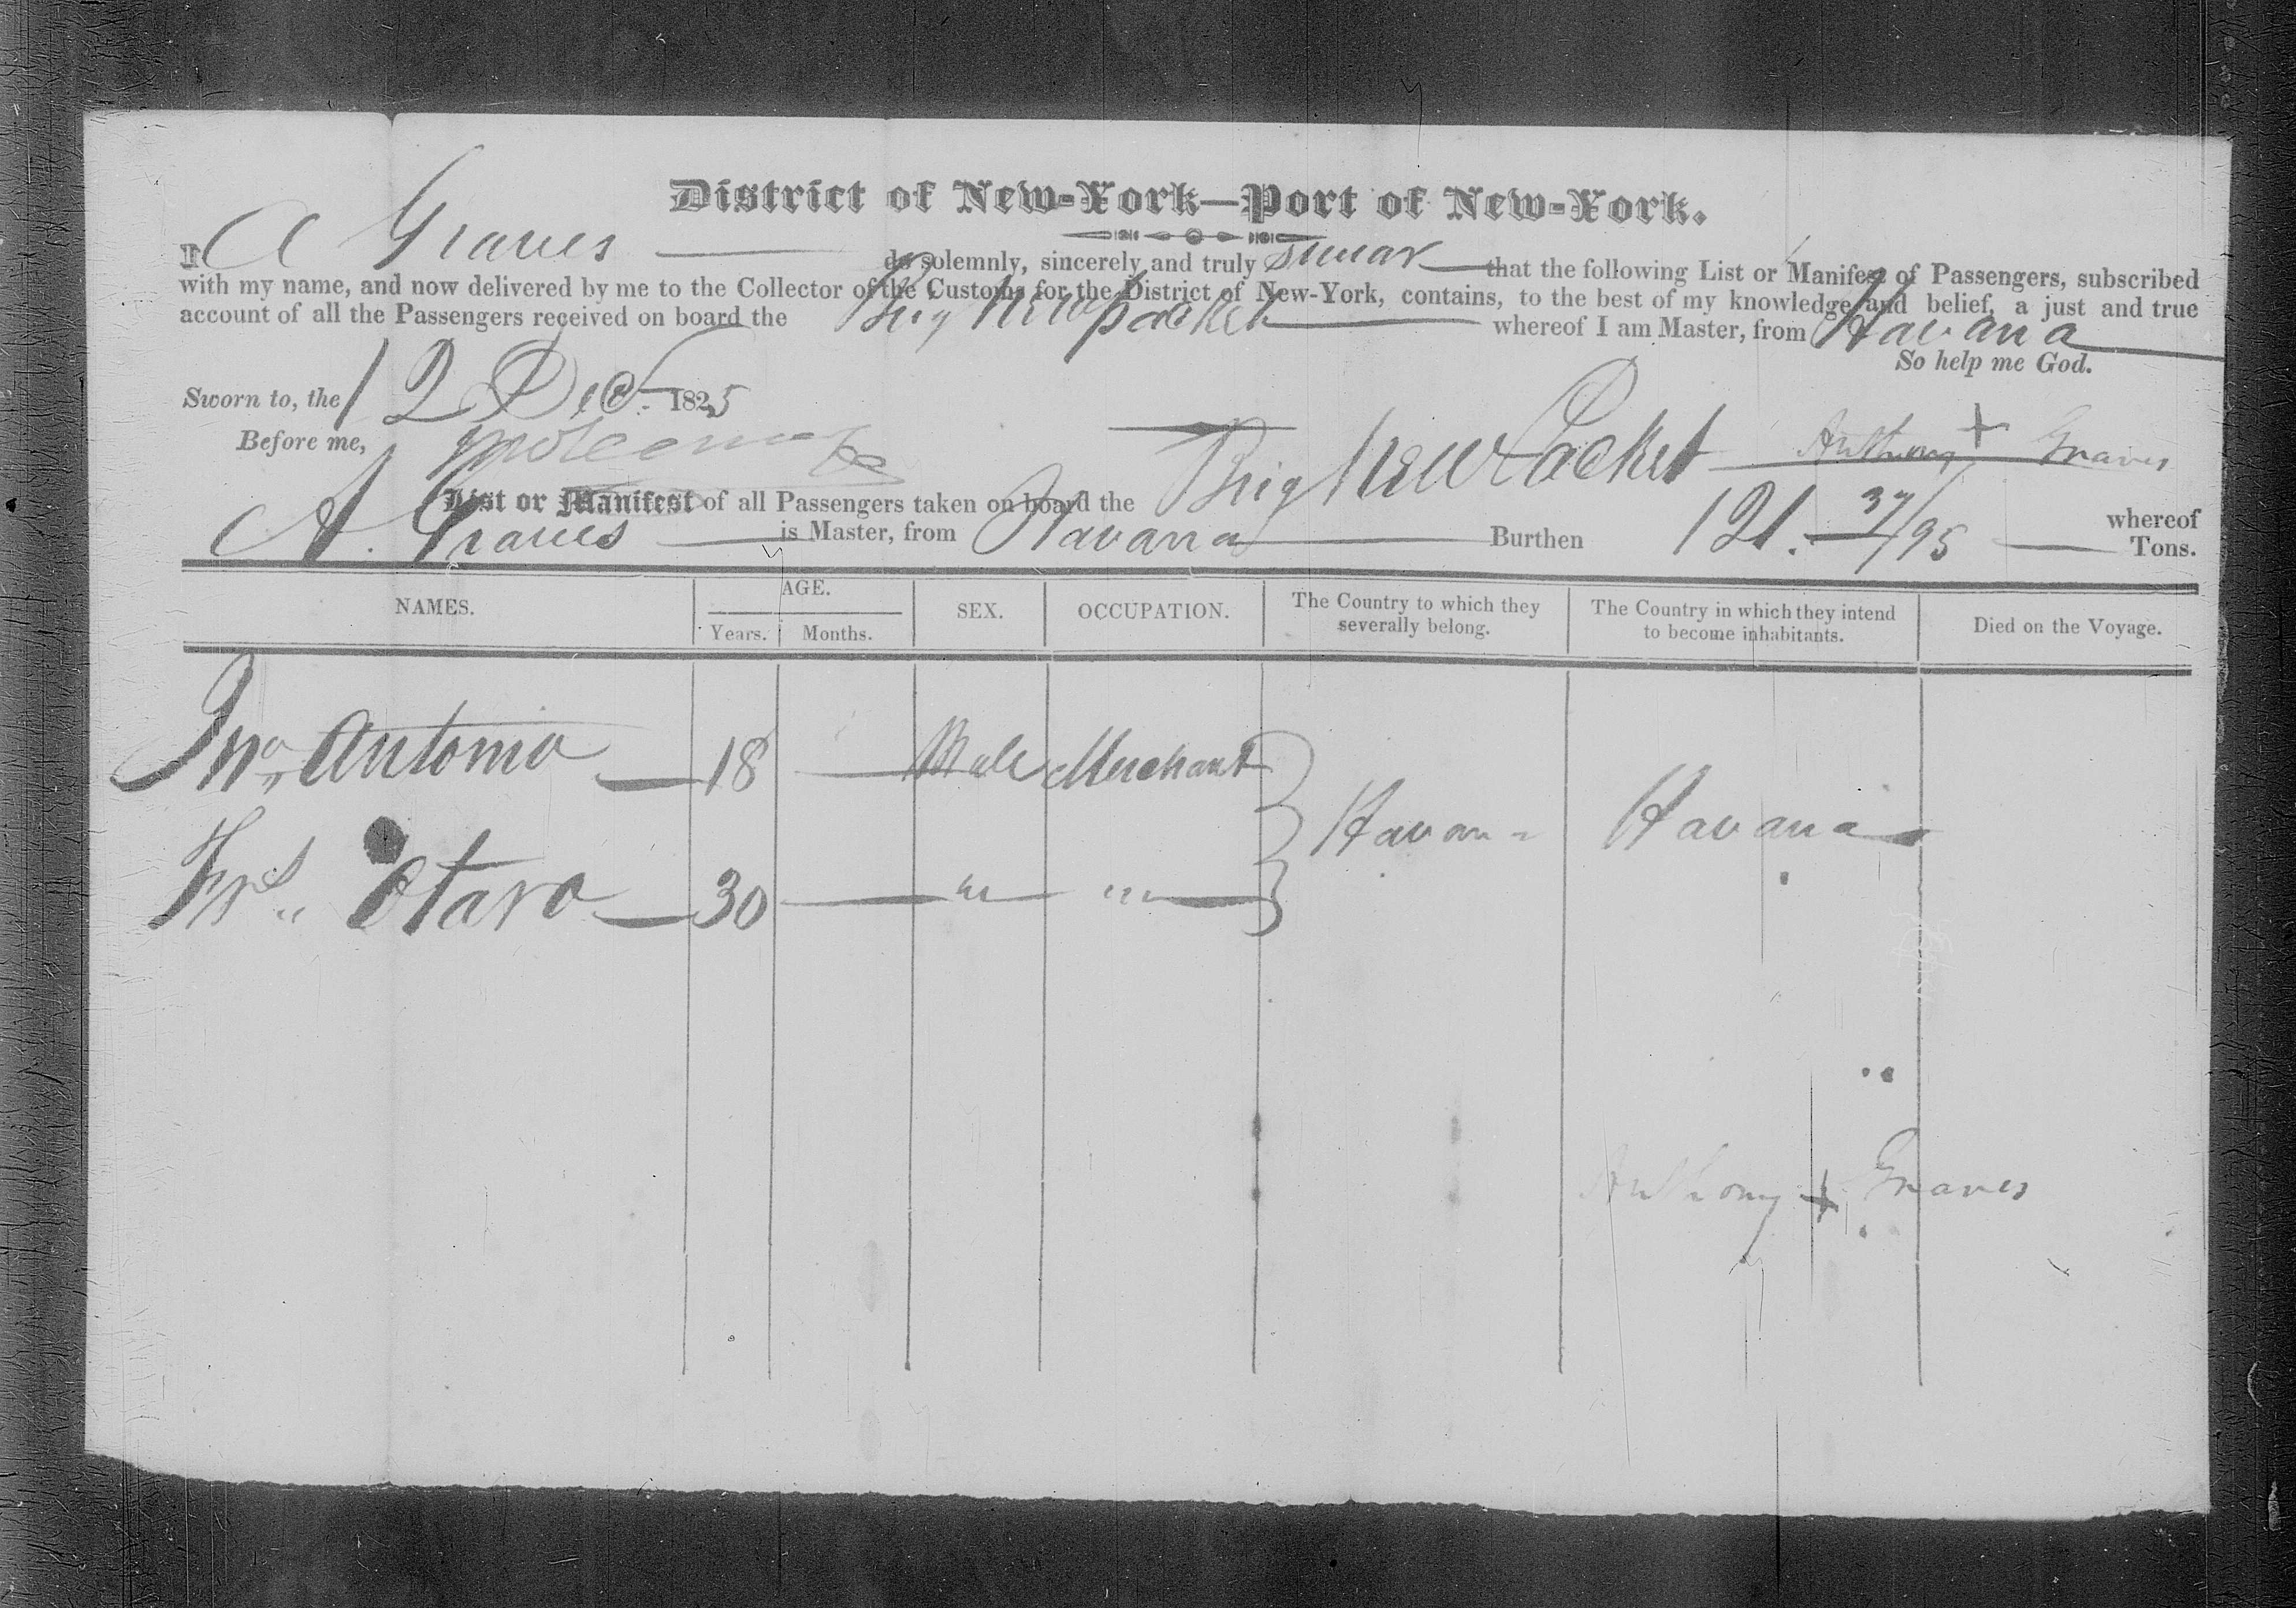 District of New-York—Port of New-York.
I A Graves do solemnly, sincerely and truly swear that the following List or Manifest of Passengers, subscribed
with my name, and now delivered by me to the Collector of the Customs for the District of New-York, contains, to the best of my knowledge and belief, a just and true
account of all the Passengers received on board the Brig New packet whereof I am Master, from Havana
So help me God.
Sworn to, the 12 Dec. 1825
Before me,
Anthony + Graves
List or Manifest of all Passengers taken on board the Brig New Packet whereof
A. Graves is Master, from Havana Burthen 121. 37/95 Tons.
NAMES. AGE. SEX. OCCUPATION. The Country to which they severally belong. The Country in which they intend to become inhabitants. Died on the Voyage.
Years. Months.
Jno,, Antonio 18 Male Merchant
Havana Havana
Frs,, Otaro 30 " "
Anthony + Graves